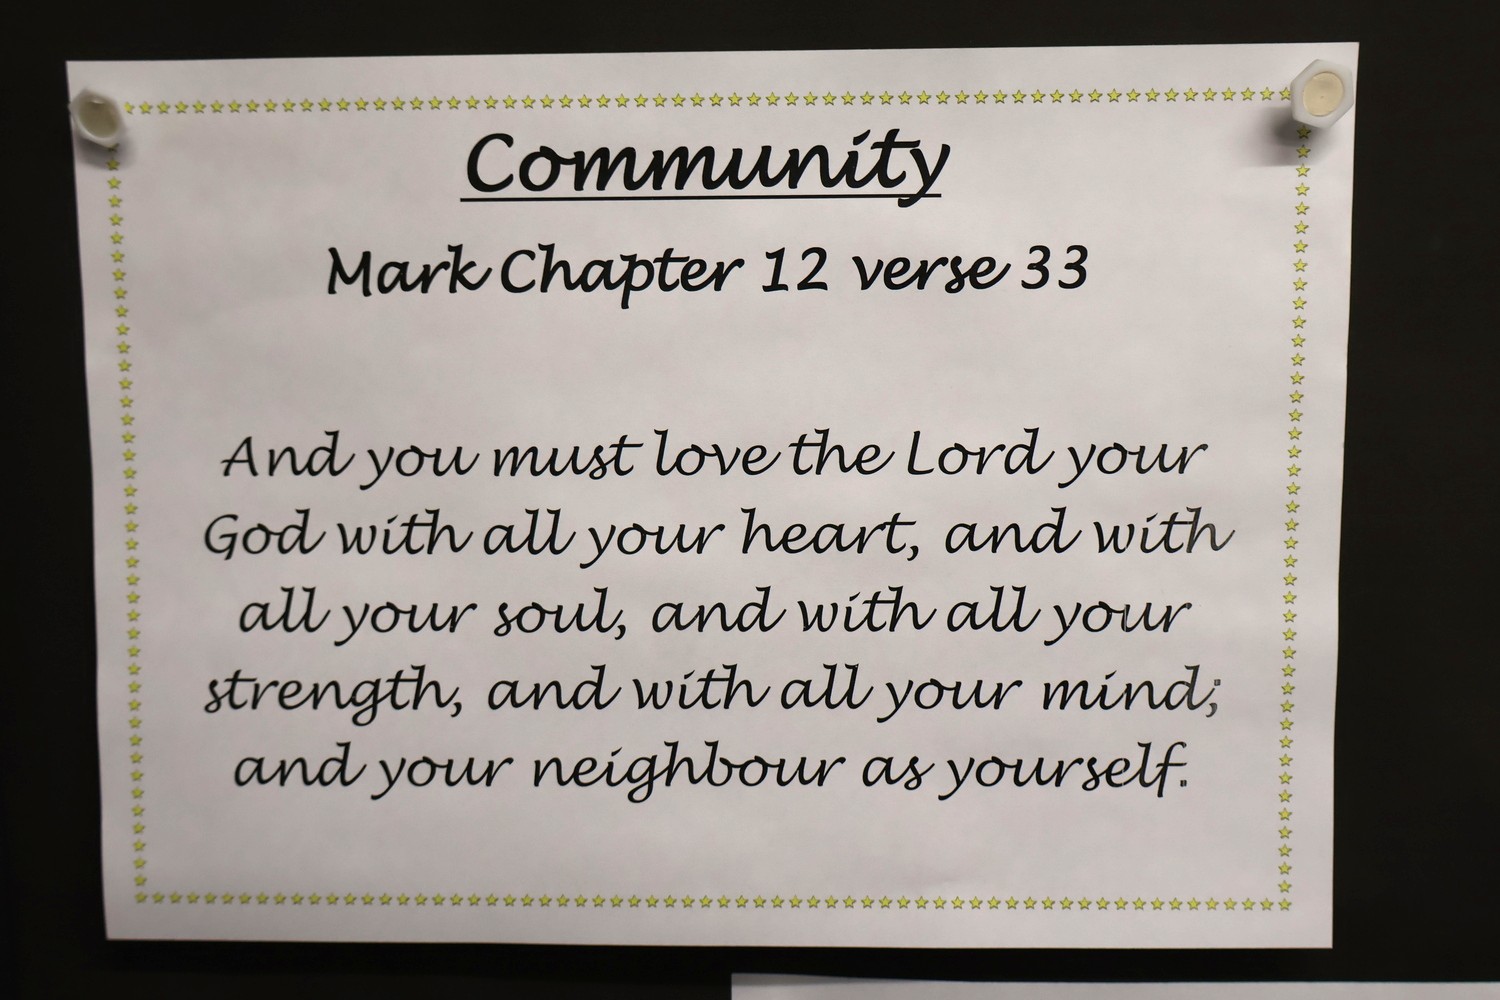 Community
Mark Chapter 12 verse 33
And you must love the Lord your
God with all your heart, and with
all your soul, and with all your
strength, and with all your mind;
and your neighbour as yourself.